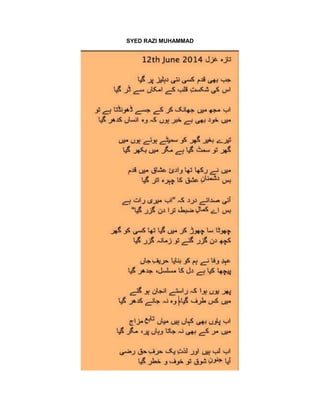 SYED RAZI MUHAMMAD
تازہ غزل 12th June 2014
جب بھی قدم کسی نئی دہلیز پر گیا
اس کی شکستِ قلب کے امکاں سے ڈر گیا
اب مجھ میں جھانک کر کے جسے ڈھونڈتا ہے تو
میں خود بھی بے خبر ہوں کہ وہ انساں کدھر گیا
تیرے بغیر گھر کو سمیٹے ہوئے ہوں میں
گھر تو سمٹ گیا ہے مگر میں بکھر گیا
میں نے رکھا تھا وادئ عشاق میں قدم
بس دشمنانِ عشق کا چہرہ اتر گیا
آتی صدائے درد کہ "اب میری رات ہے
بس اے کمالِ ضبط، ترا دن گزر گیا"
چھوٹا سا چھوڑ کر میں گیا تھا کسی کو گھر
کچھ دن گزر گئے تو زمانہ گزر گیا
عہدِ وفا نے ہم کو بنایا حریفِ جاں
پیچھا کیا ہے دل کا مسلسل، جدھر گیا
پھر یوں ہوا کہ راستے انجان ہو گئے
میں کس طرف گیا، وہ نہ جانے کدھر گیا
اب پاوں بھی کہاں ہیں میاں تابعِ مزاج
میں مر کے بھی نہ جاتا وہاں پر، مگر گیا
اب لب ہیں اور لذتِ یک حرفِ حق رضی
آیا جنونِ شوق تو خوف و خطر گیا